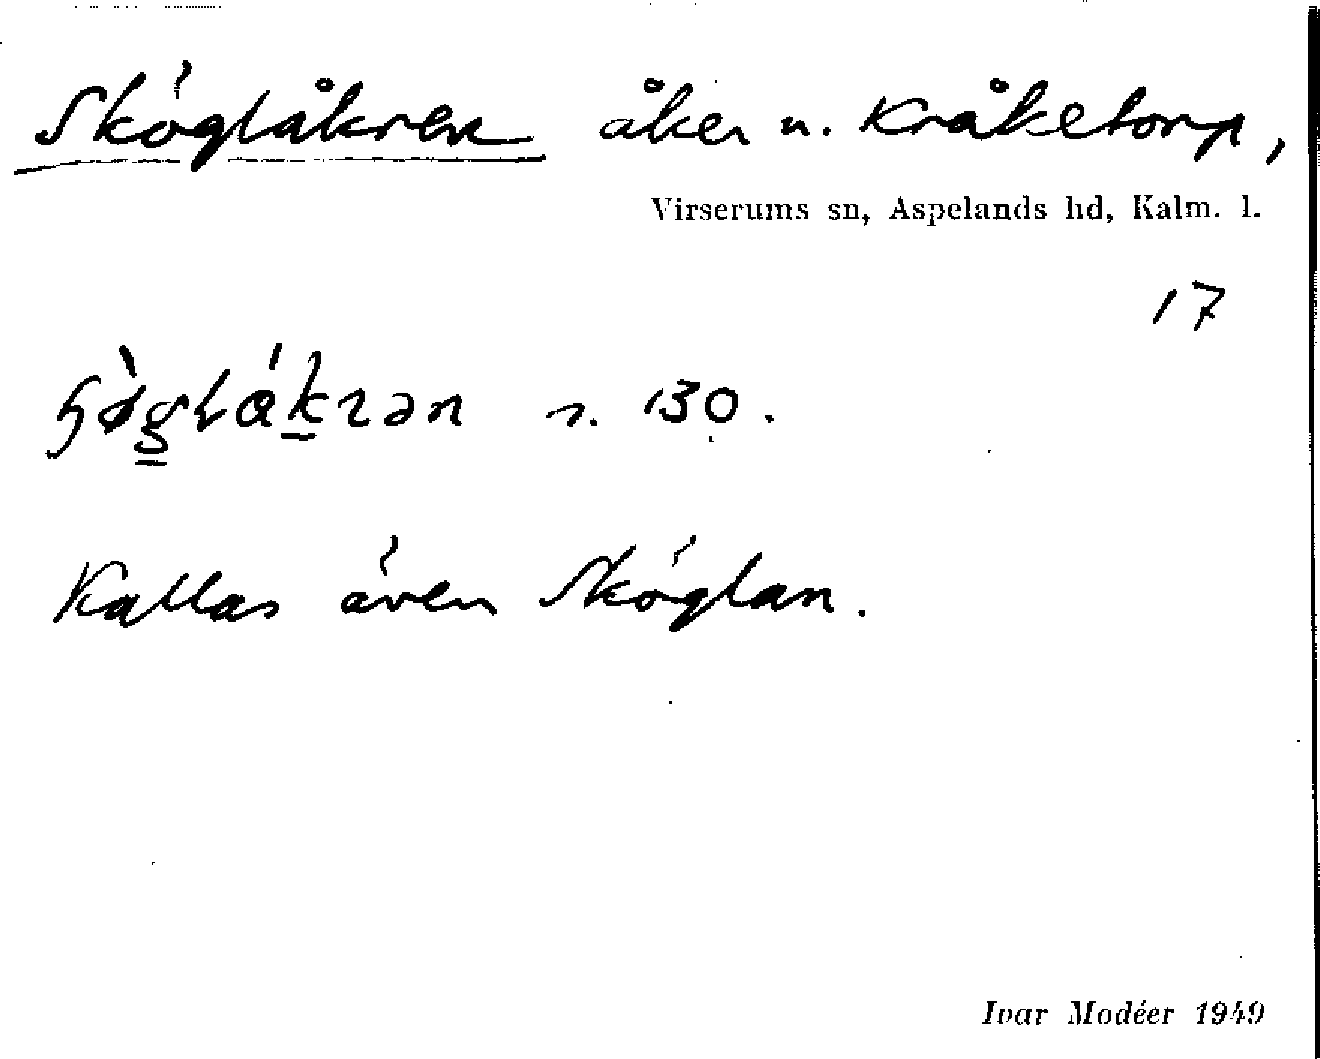 Sköglåkren åker u. Kråketorp,
Virserums sn, Aspelands hd, Kalm. l.
17
130.
Kallas även Sköglan.
Ivar Modéer 1949